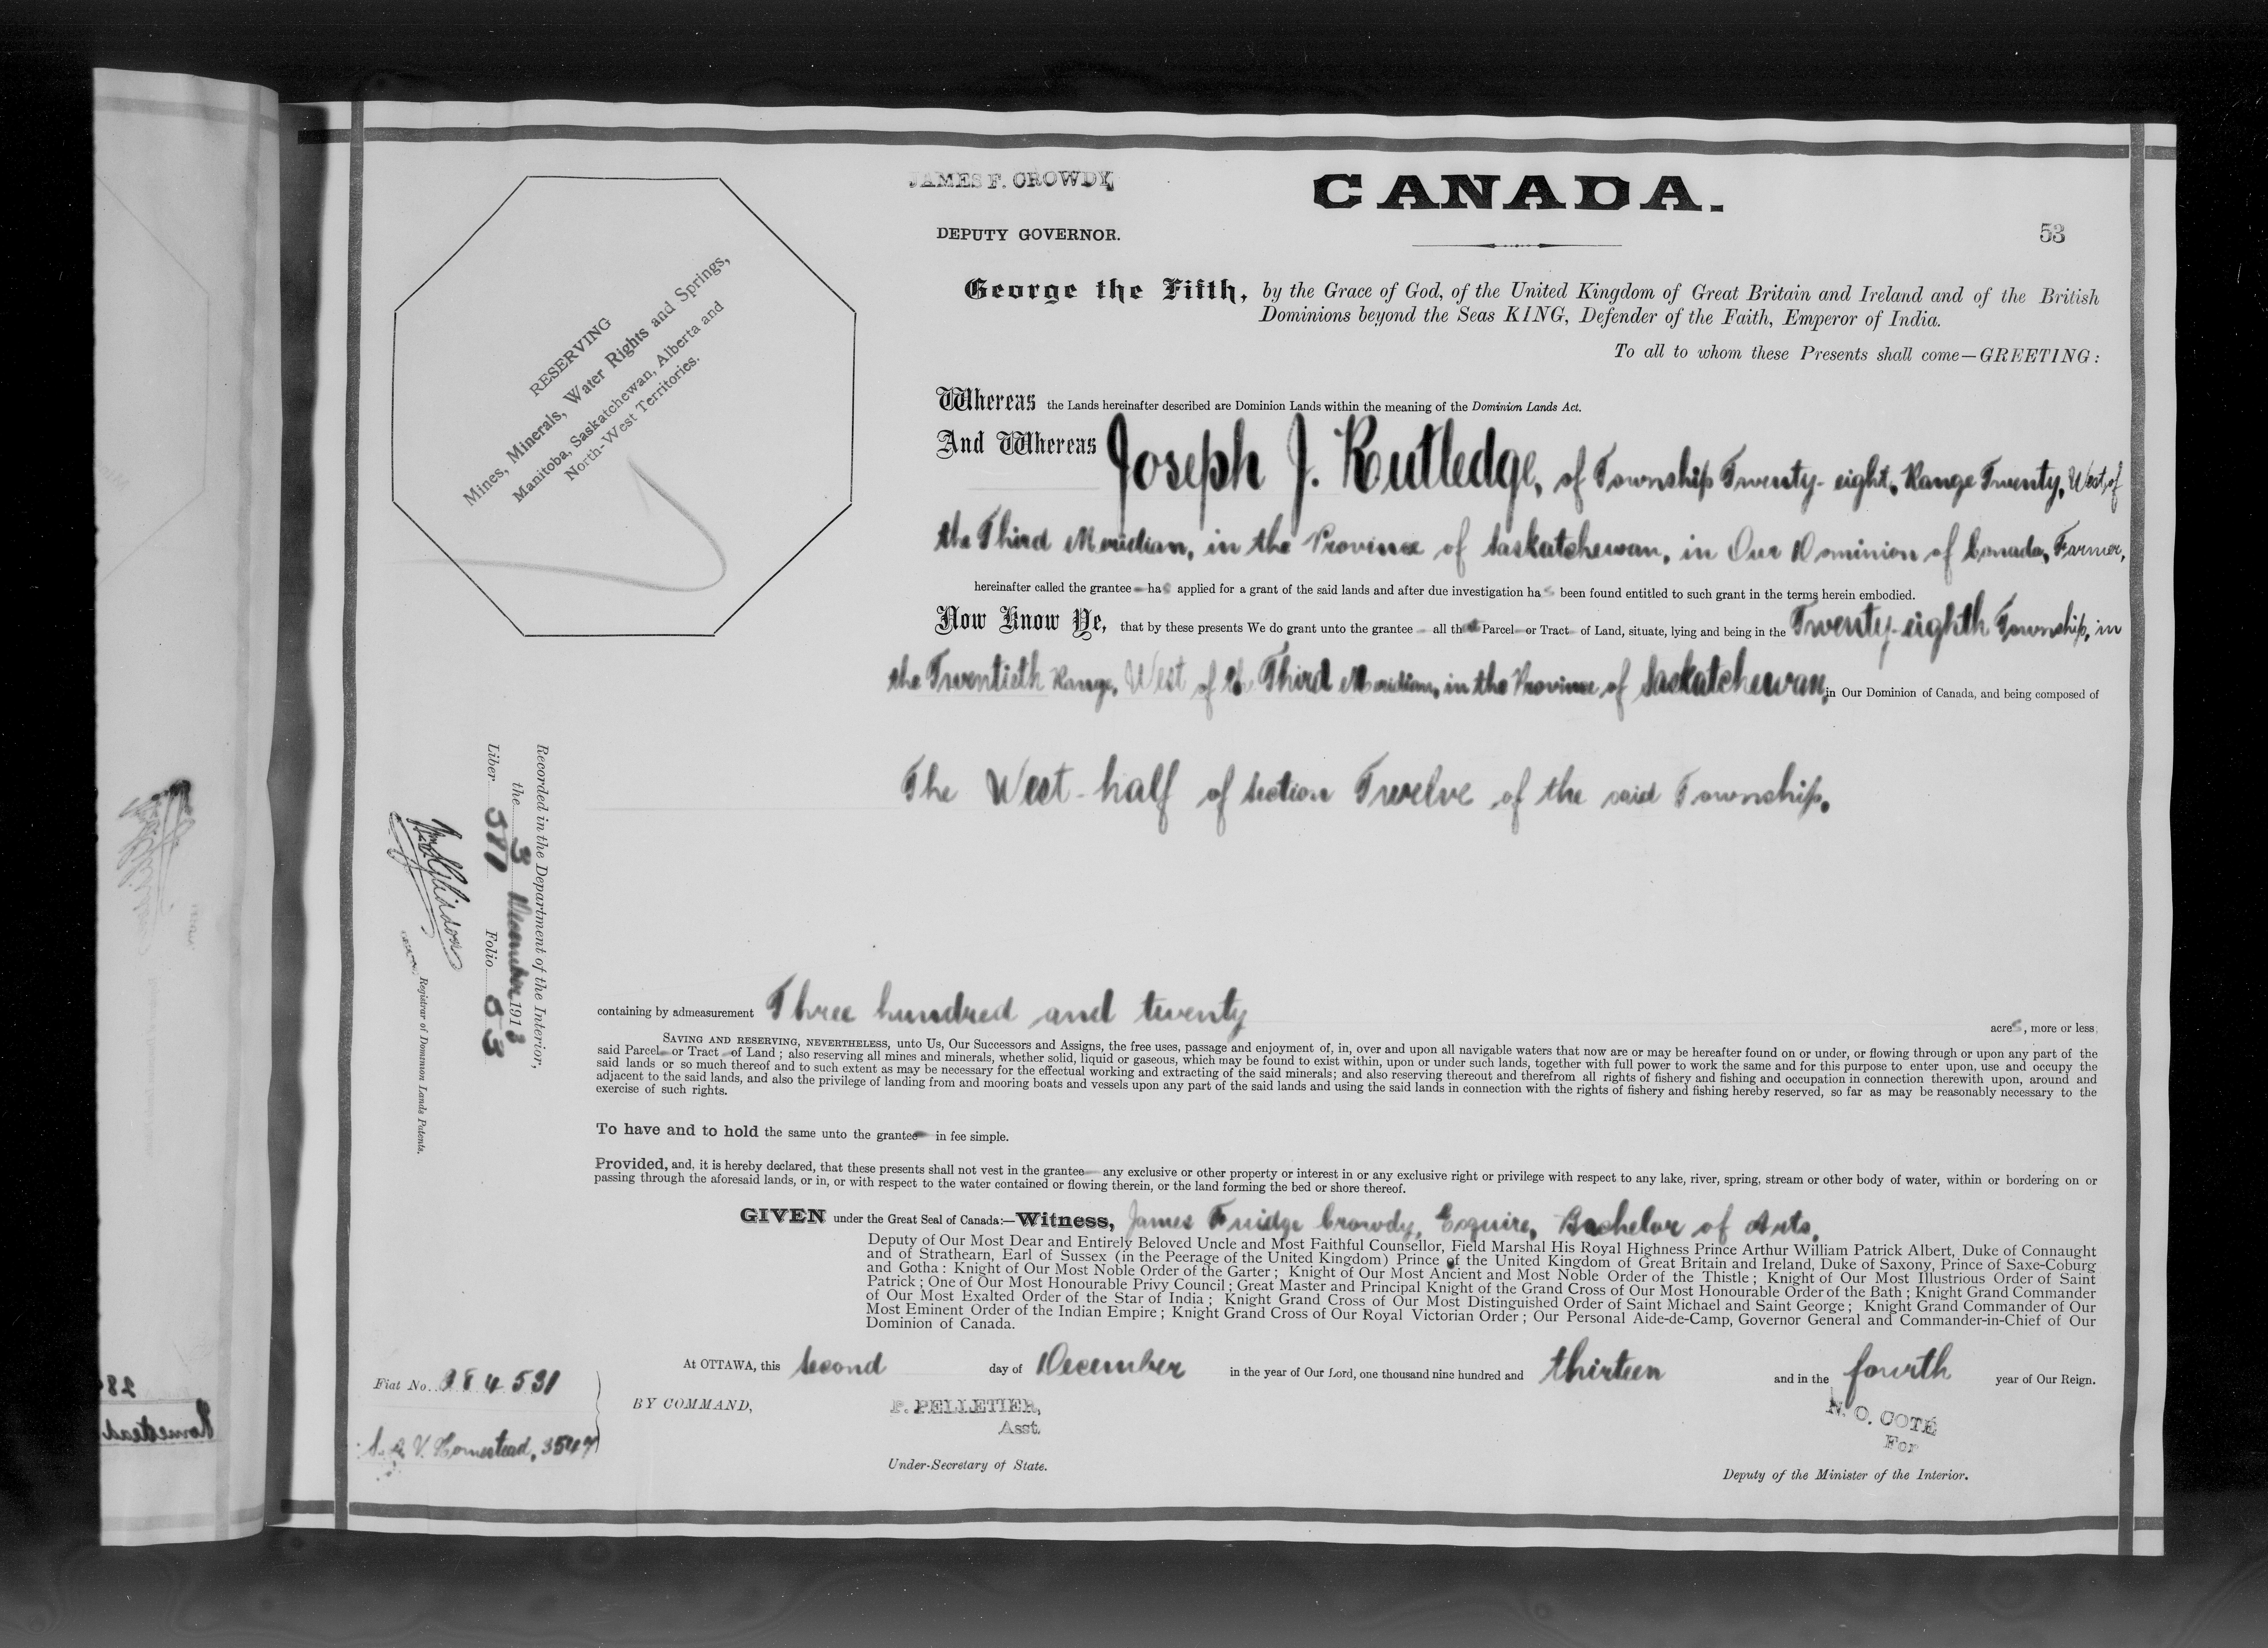 JAMES F. CROWDY,
CANADA.
DEPUTY GOVERNOR.
53
RESERVING
Mines, Minerals, Water Rights and Springs,
Manitoba, Saskatchewan, Alberta and
North-West Territories.
George the Fifth, by the Grace of God, of the United Kingdom of Great Britain and Ireland and of the British
Dominions beyond the Seas KING, Defender of the Faith, Emperor of India.
To all to whom these Presents shall come—GREETING:
Whereas the Lands hereinafter described are Dominion Lands within the meaning of the Dominion Lands Act.
And Whereas Joseph J. Rutledge, of Township Twenty-eight, Range Twenty, West of
the Third Meridian, in the Province of Saskatchewan, in Our Dominion of Canada, Farmer,
hereinafter called the grantee has applied for a grant of the said lands and after due investigation has been found entitled to such grant in the terms herein embodied.
Now Know Ye, that by these presents We do grant unto the grantee all that Parcel or Tract of Land, situate, lying and being in the Twenty-eighth Township, in
the Twentieth Range, West of the Third Meridian, in the Province of Saskatchewan, in Our Dominion of Canada, and being composed of
The West-half of Section Twelve of the said Township.
Recorded in the Department of the Interior,
the 3 December 1913
Liber Folio 53
Registrar of Dominion Lands Patents.
containing by admeasurement Three hundred and twenty acres, more or less;
SAVING AND RESERVING, NEVERTHELESS, unto Us, Our Successors and Assigns, the free uses, passage and enjoyment of, in, over and upon all navigable waters that now are or may be hereafter found on or under, or flowing through or upon any part of the
said Parcel or Tract of Land; also reserving all mines and minerals, whether solid, liquid or gaseous, which may be found to exist within, upon or under such lands, together with full power to work the same and for this purpose to enter upon, use and occupy the
said lands or so much thereof and to such extent as may be necessary for the effectual working and extracting of the said minerals; and also reserving thereout and therefrom all rights of fishery and fishing and occupation in connection therewith upon, around and
adjacent to the said lands, and also the privilege of landing from and mooring boats and vessels upon any part of the said lands and using the said lands in connection with the rights of fishery and fishing hereby reserved, so far as may be reasonably necessary to the
exercise of such rights.
To have and to hold the same unto the grantee in fee simple.
Provided, and, it is hereby declared, that these presents shall not vest in the grantee any exclusive or other property or interest in or any exclusive right or privilege with respect to any lake, river, spring, stream or other body of water, within or bordering on or
passing through the aforesaid lands, or in, or with respect to the water contained or flowing therein, or the land forming the bed or shore thereof.
GIVEN under the Great Seal of Canada:—Witness, James Fuidge Crowdy, Esquire, Bachelor of Arts,
Deputy of Our Most Dear and Entirely Beloved Uncle and Most Faithful Counsellor, Field Marshal His Royal Highness Prince Arthur William Patrick Albert, Duke of Connaught
and of Strathearn, Earl of Sussex (in the Peerage of the United Kingdom) Prince of the United Kingdom of Great Britain and Ireland, Duke of Saxony, Prince of Saxe-Coburg
and Gotha: Knight of Our Most Noble Order of the Garter; Knight of Our Most Ancient and Most Noble Order of the Thistle; Knight of Our Most Illustrious Order of Saint
Patrick; One of Our Most Honourable Privy Council; Great Master and Principal Knight of the Grand Cross of Our Most Honourable Order of the Bath; Knight Grand Commander
of Our Most Exalted Order of the Star of India; Knight Grand Cross of Our Most Distinguished Order of Saint Michael and Saint George; Knight Grand Commander of Our
Most Eminent Order of the Indian Empire; Knight Grand Cross of Our Royal Victorian Order; Our Personal Aide-de-Camp, Governor General and Commander-in-Chief of Our
Dominion of Canada.
At OTTAWA, this Second day of December in the year of Our Lord, one thousand nine hundred and thirteen and in the fourth year of Our Reign.
Fiat No.
BY COMMAND,
P. PELLETIER,
Asst.
Under-Secretary of State.
N. O. COTÉ
For
Deputy of the Minister of the Interior.
Homestead, 3547